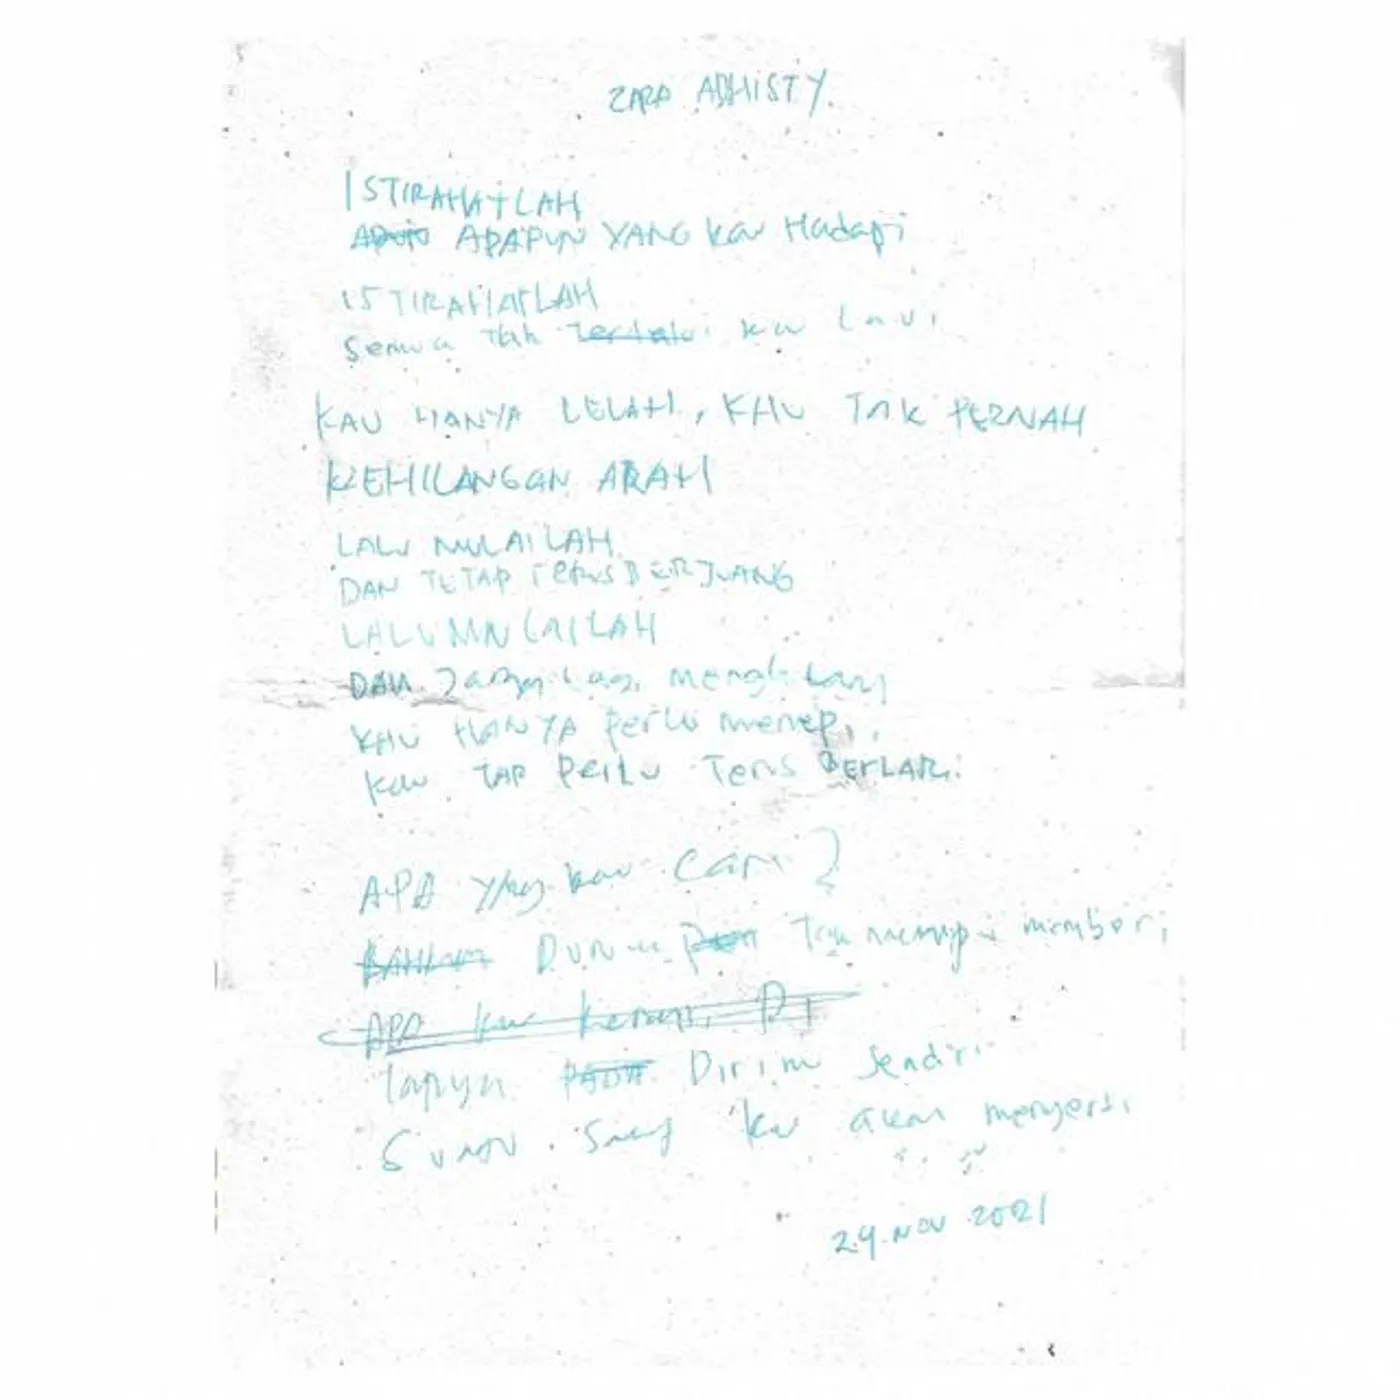 ZARA ADHISTY
ISTIRAHATLAH
APAPUN YANG kau Hadapi
ISTIRAHATLAH
Semua tak Terlalui kau Lalui
KAU HANYA LELAH, KAU TAK PERNAH
KEHILANGAN ARAH
LALU MULAILAH
DAN TETAP TERUS BERJUANG
LALU MULAILAH
DAN Jangan Lagi menghilang
KAU HANYA perlu menepi,
kau TAP PerLu Terus BERLARi.
APA yang kau Cari?
Dunia Tak mampu memberi
APA kau Di
Tanya PADA Dirimu Sendiri
Suatu Saat kau akan mengerti
29. NOV 2021